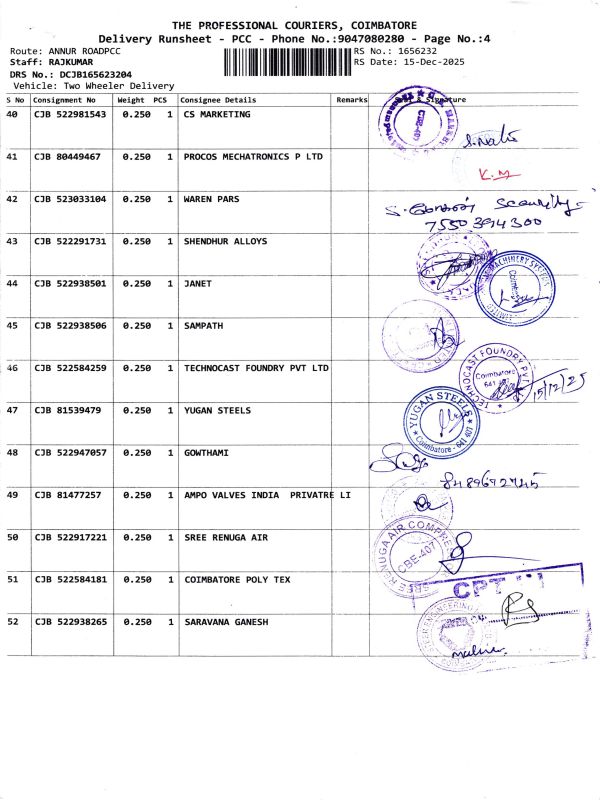 THE PROFESSIONAL COURIERS, COIMBATORE
Delivery Runsheet - PCC - Phone No.:9047080280 - Page No.:4
Route: ANNUR ROADPCC RS No.: 1656232
Staff: RAJKUMAR RS Date: 15-Dec-2025
DRS No.: DCJB165623204
Vehicle: Two Wheeler Delivery
S No Consignment No Weight PCS Consignee Details Remarks & Signature
40 CJB 522981543 0.250 1 CS MARKETING
CBE-407
41 CJB 80449467 0.250 1 PROCOS MECHATRONICS P LTD
K.M
42 CJB 523033104 0.250 1 WAREN PARS
Security
7550394300
43 CJB 522291731 0.250 1 SHENDHUR ALLOYS
44 CJB 522938501 0.250 1 JANET
MACHINERY SYSTEMS
Coimbatore
LIMITED
45 CJB 522938506 0.250 1 SAMPATH
46 CJB 522584259 0.250 1 TECHNOCAST FOUNDRY PVT LTD
TECHNOCAST FOUNDRY PVT
Coimbatore
15/12/25
47 CJB 81539479 0.250 1 YUGAN STEELS
YUGAN STEELS
Coimbatore - 641 407
48 CJB 522947057 0.250 1 GOWTHAMI
8489692745
49 CJB 81477257 0.250 1 AMPO VALVES INDIA PRIVATRE LI
50 CJB 522917221 0.250 1 SREE RENUGA AIR
SREE RENUGA AIR COMPRE
CBE-407
51 CJB 522584181 0.250 1 COIMBATORE POLY TEX
CPT
52 CJB 522938265 0.250 1 SARAVANA GANESH
ENGINEERING